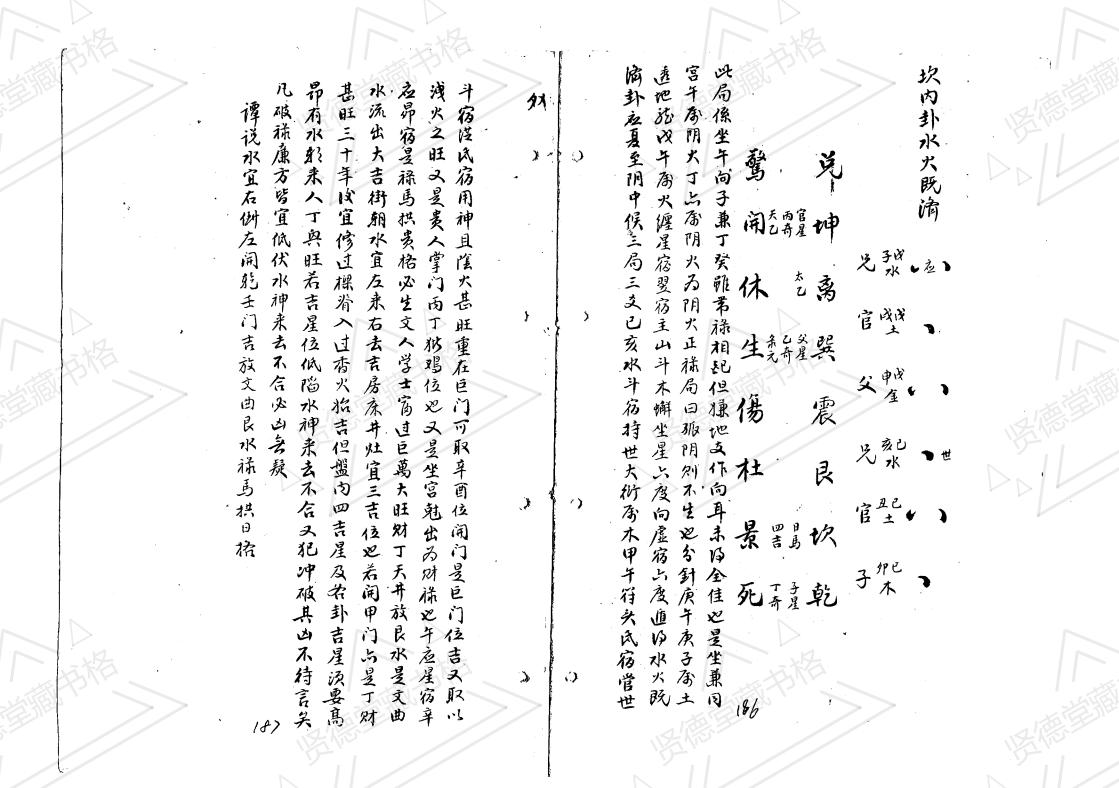 坎内卦水火既濟
兄 子戊水 应
官 戌戊土
父 申戊金
兄 亥己水 世
官 丑己土
子 卯己木
兑坤离巽震艮坎乾
官星 丙奇 天乙
太乙
父星 乙奇 奈元
日馬 四吉
子星 丁奇
驚開休生傷杜景死
此局係坐午向子兼丁癸雖带禄相起但嫌地支作向耳未得全佳也是坐兼同
宫午属阴火丁亦属阴火为阴火正禄局曰孤阴则不生也分針庚午庚子属土
透地龍戊午属火纏星宿翌宿主山斗木蠏坐星六度向虚宿六度遁得水火既
濟卦应夏至阴中候三局三爻己亥水斗宿持世大衍属木甲午符头氐宿管世
186
外
斗宿從氐宿用神且陰火甚旺重在巨门可取辛酉位開门是巨门位吉又取以
浅火之旺又是贵人掌门丙丁猪鸡位也又是坐宫尅出为财禄也午应星宿辛
应昴宿是禄馬拱贵格必生文人学士富过巨萬大旺财丁天井放艮水是文曲
水流出大吉街朝水宜左来右去吉房床井灶宜三吉位也若開甲门亦是丁财
甚旺三十年後宜修过樑脊入过香火始吉但盤内四吉星及各卦吉星须要高
昴有水朝来人丁興旺若吉星位低陷水神来去不合又犯冲破其凶不待言矣
凡破禄廉方皆宜低伏水神来去不合必凶無疑
譚说水宜右倒左開乾壬门吉放文曲艮水禄馬拱日格
187
贤德堂藏书格